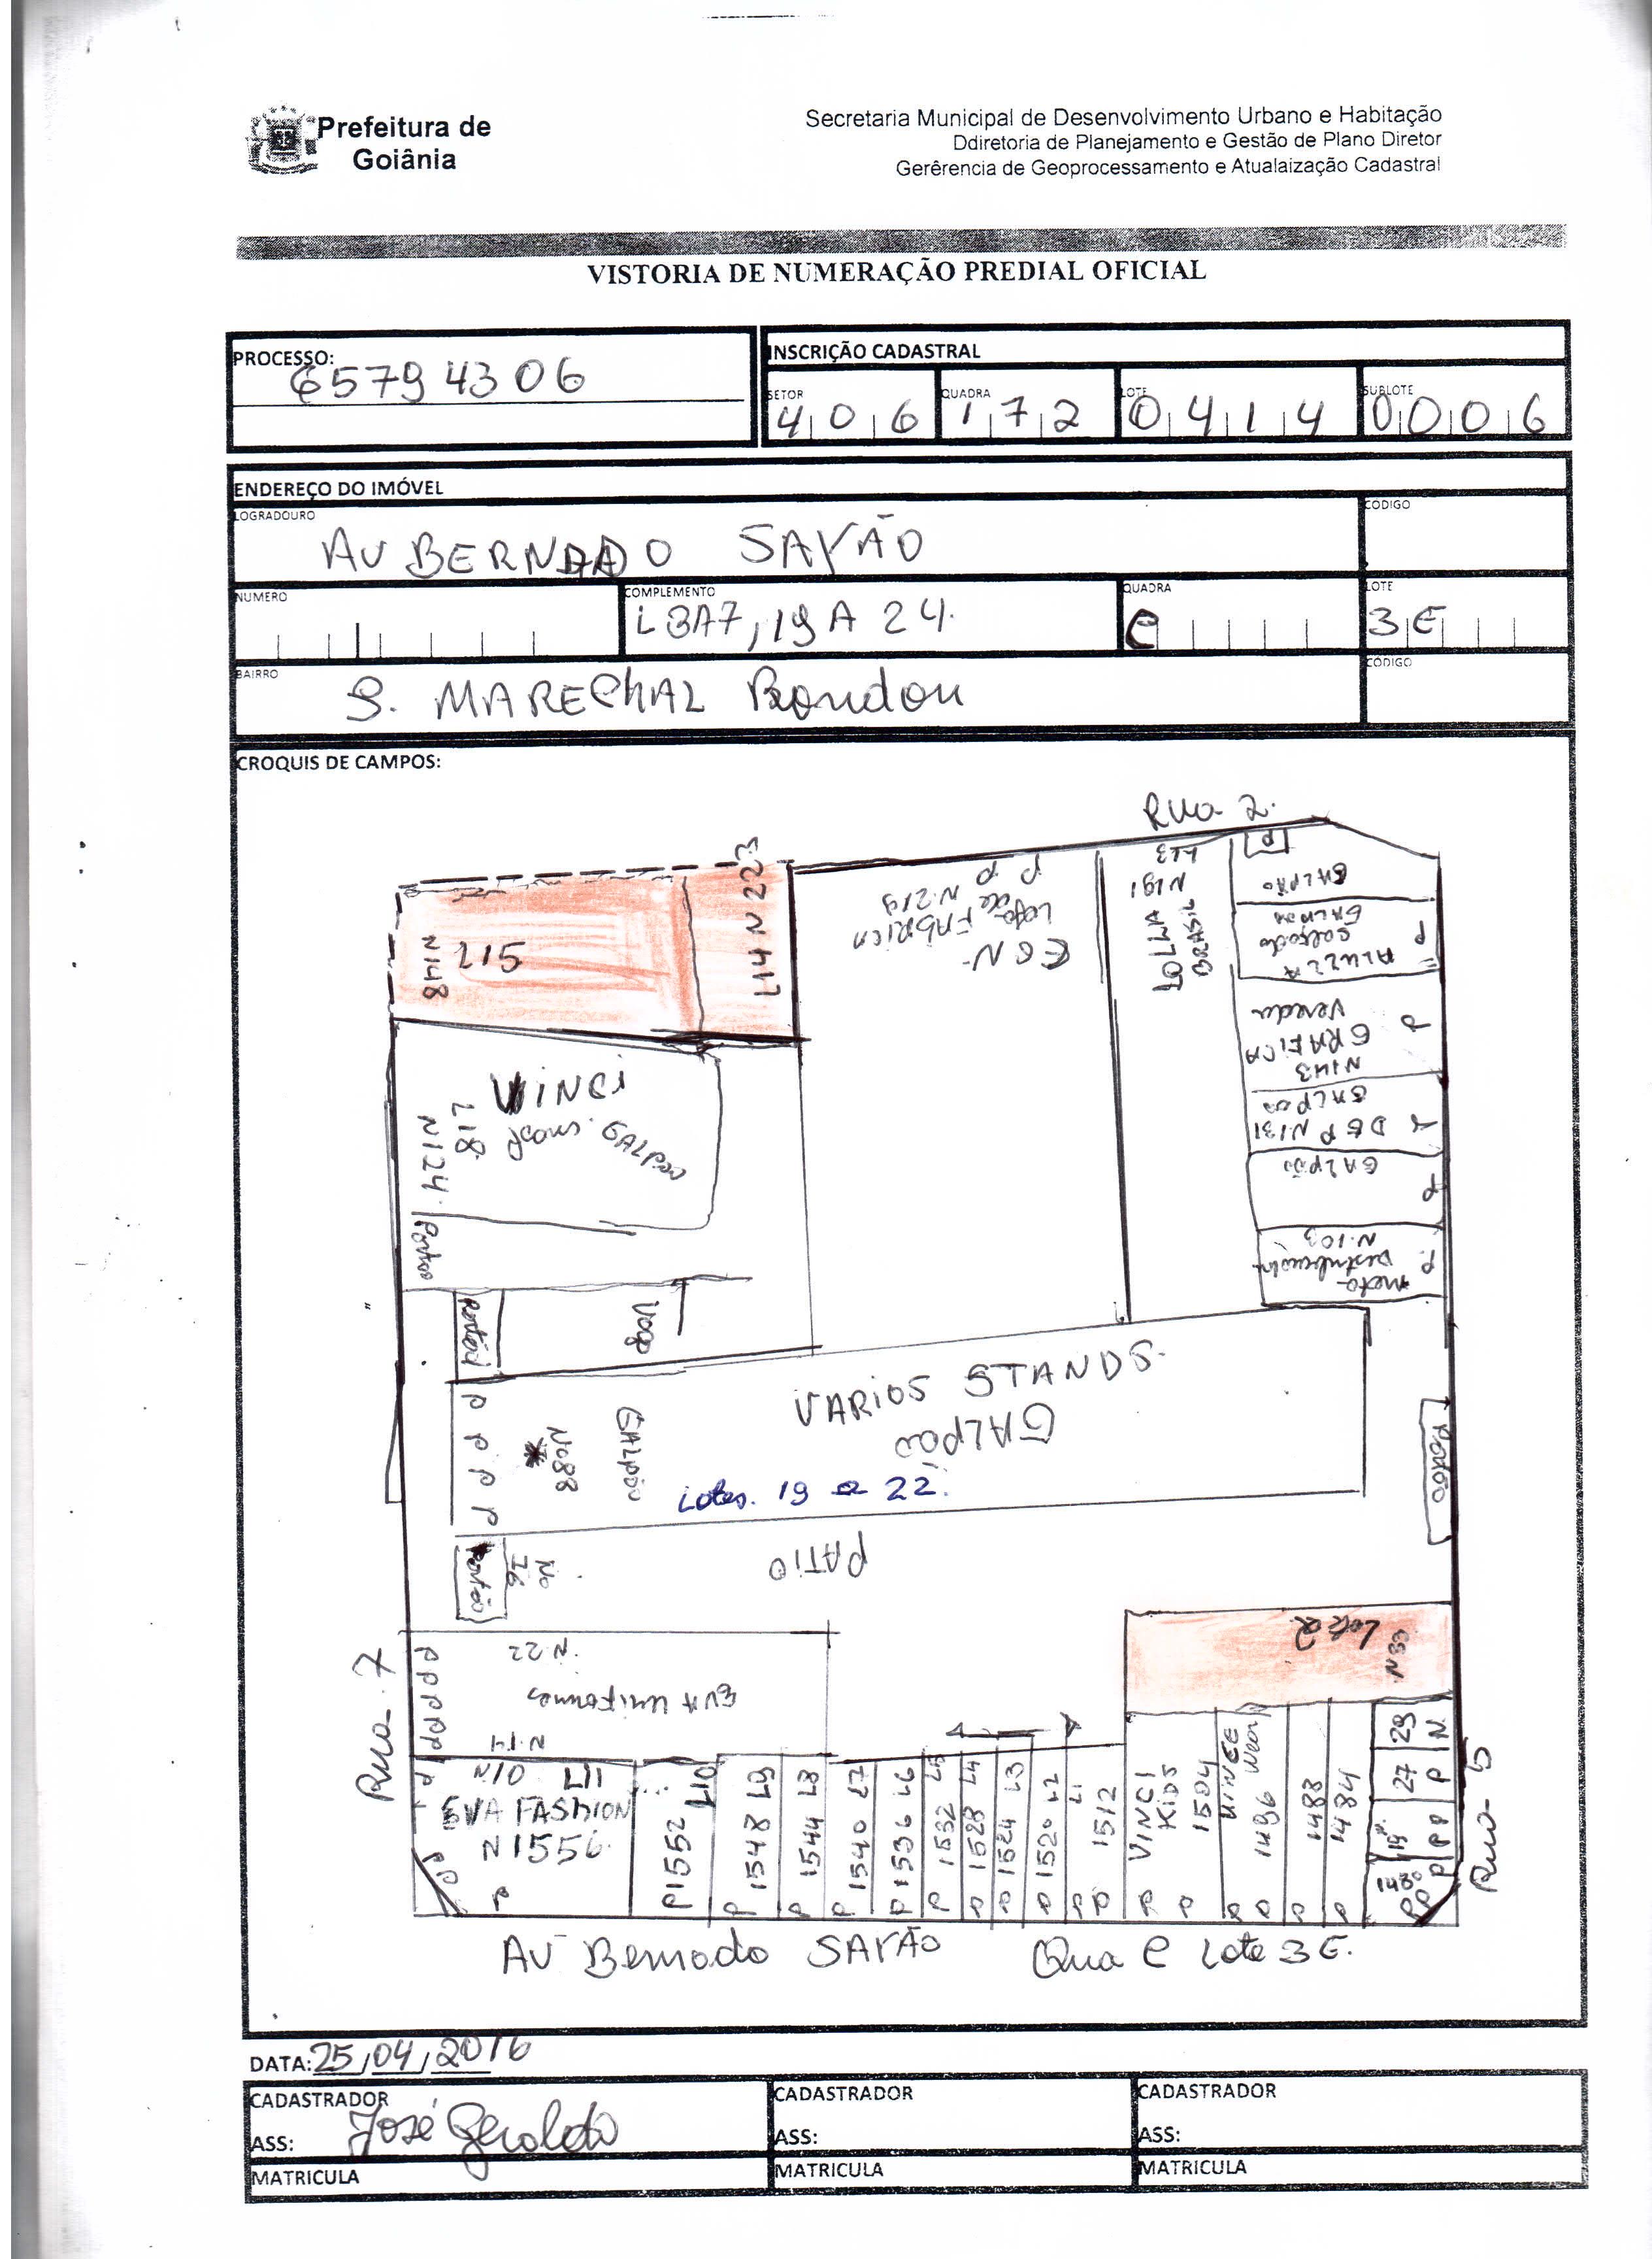 Prefeitura de
Goiânia
Secretaria Municipal de Desenvolvimento Urbano e Habitação
Ddiretoria de Planejamento e Gestão de Plano Diretor
Gerêrencia de Geoprocessamento e Atualaização Cadastral
VISTORIA DE NUMERAÇÃO PREDIAL OFICIAL
PROCESSO:
65794306
INSCRIÇÃO CADASTRAL
SETOR
406
QUADRA
172
LOTE
0414
SUBLOTE
0006
ENDEREÇO DO IMÓVEL
LOGRADOURO
AV BERNADO SAYÃO
CODIGO
NUMERO
COMPLEMENTO
L3A7, 19 A 24.
QUADRA
C
LOTE
3E
BAIRRO
S. MARECHAL Rondon
CODIGO
CROQUIS DE CAMPOS:
Rua 2.
P
L13
N191
GALPÃO
L14 N 223
P P
Loja de FABRICA
N.219
N148
L15
P
ALUZZA
P
GRAFICA
N143
VINCI
GALPÃO
L18
N124
GALPÃO
N131
P
GALPÃO
P
Portão
N.103
P.
Portão
VARIOS STANDS.
GALPÃO
P P P P P
No 88
GALPÃO
Lotes. 19 a 22.
Portão
Portão
No
76
PATIO
Lote 2
N 33
Rua 7
PPPPPP
N.22
EVA Uniformes
N.14
N10 L11
EVA FASHION
N 1556
P
P1552 L10
P 1548 L9
P 1544 L8
P 1540 L7
P 1536 L6
P 1532 L5
P 1528 L4
P 1524 L3
P 1520 L2
P L1
P 1512
VINCI
KIDS
1504
P P
1496
P P
P 1488
P 1484
29
27
19
1480
N
P
PP
P
PP
Rua 5
AV Bernado SAYÃO Qua C Lote 3E.
DATA: 25/04/2016
CADASTRADOR
ASS: José Geraldo
MATRICULA
CADASTRADOR
ASS:
MATRICULA
CADASTRADOR
ASS:
MATRICULA